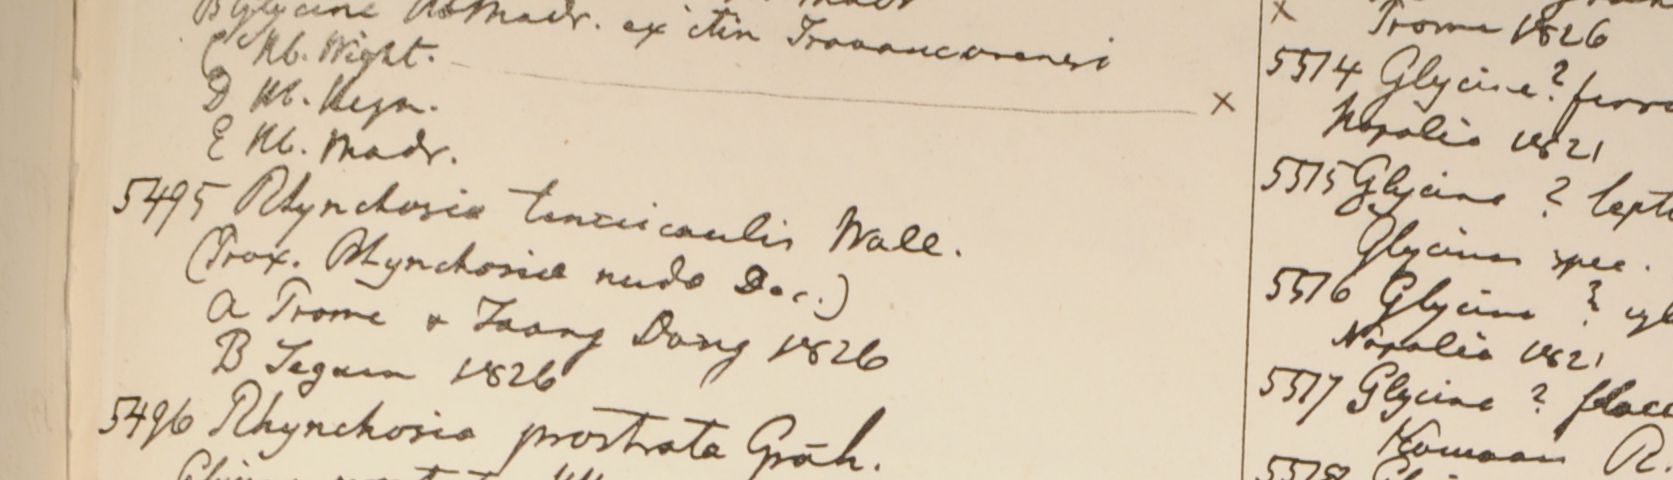 B Glycine Hb. Madr. ex itin Travancorensi
C Hb. Wight.
D Hb. Heyn.
E Hb. Madr. x
5495 Rhynchosia tenuicaulis Wall.
(Prox. Rhynchosiae nuda Dec.)
A Prome & Taong Dong 1826
B Segaen 1826
5496 Rhynchosia prostrata Grah.
x
Prome 1826
5514 Glycine?
Napalia 1821
5515 Glycine ? lept
Glycines spec.
5516 Glycine ?
Napalia 1821
5517 Glycine ? flacc
Kamaon R.
5518